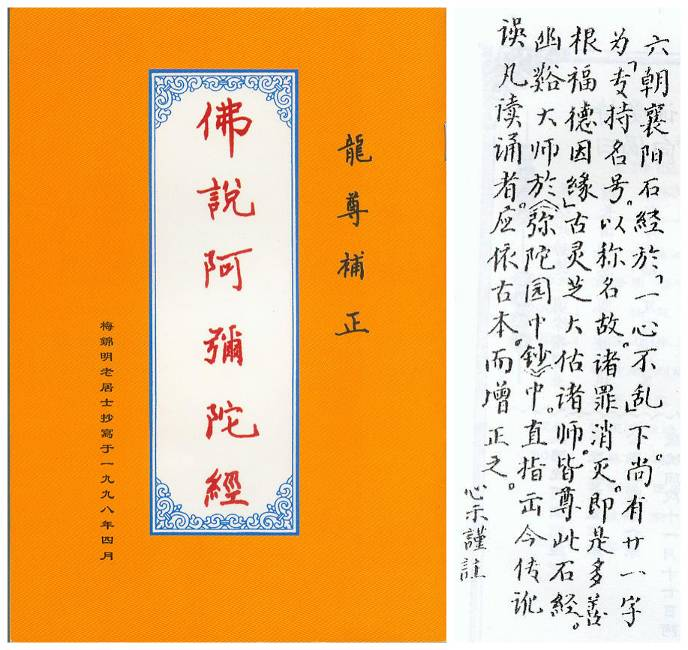 龍尊補正
佛說阿彌陀經
梅錦明老居士抄寫于一九九八年四月
六朝襄阳石經於「一心不乱」下。尚有廿一字
为「专持名号。以称名故。诸罪消灭。即是多善
根福德因緣」古灵芝大佑诸师。皆尊此石經。
幽谿大师於《弥陀园中钞》中。直指出今传讹
误凡读诵者。应依古本。而增正之。
心示謹註